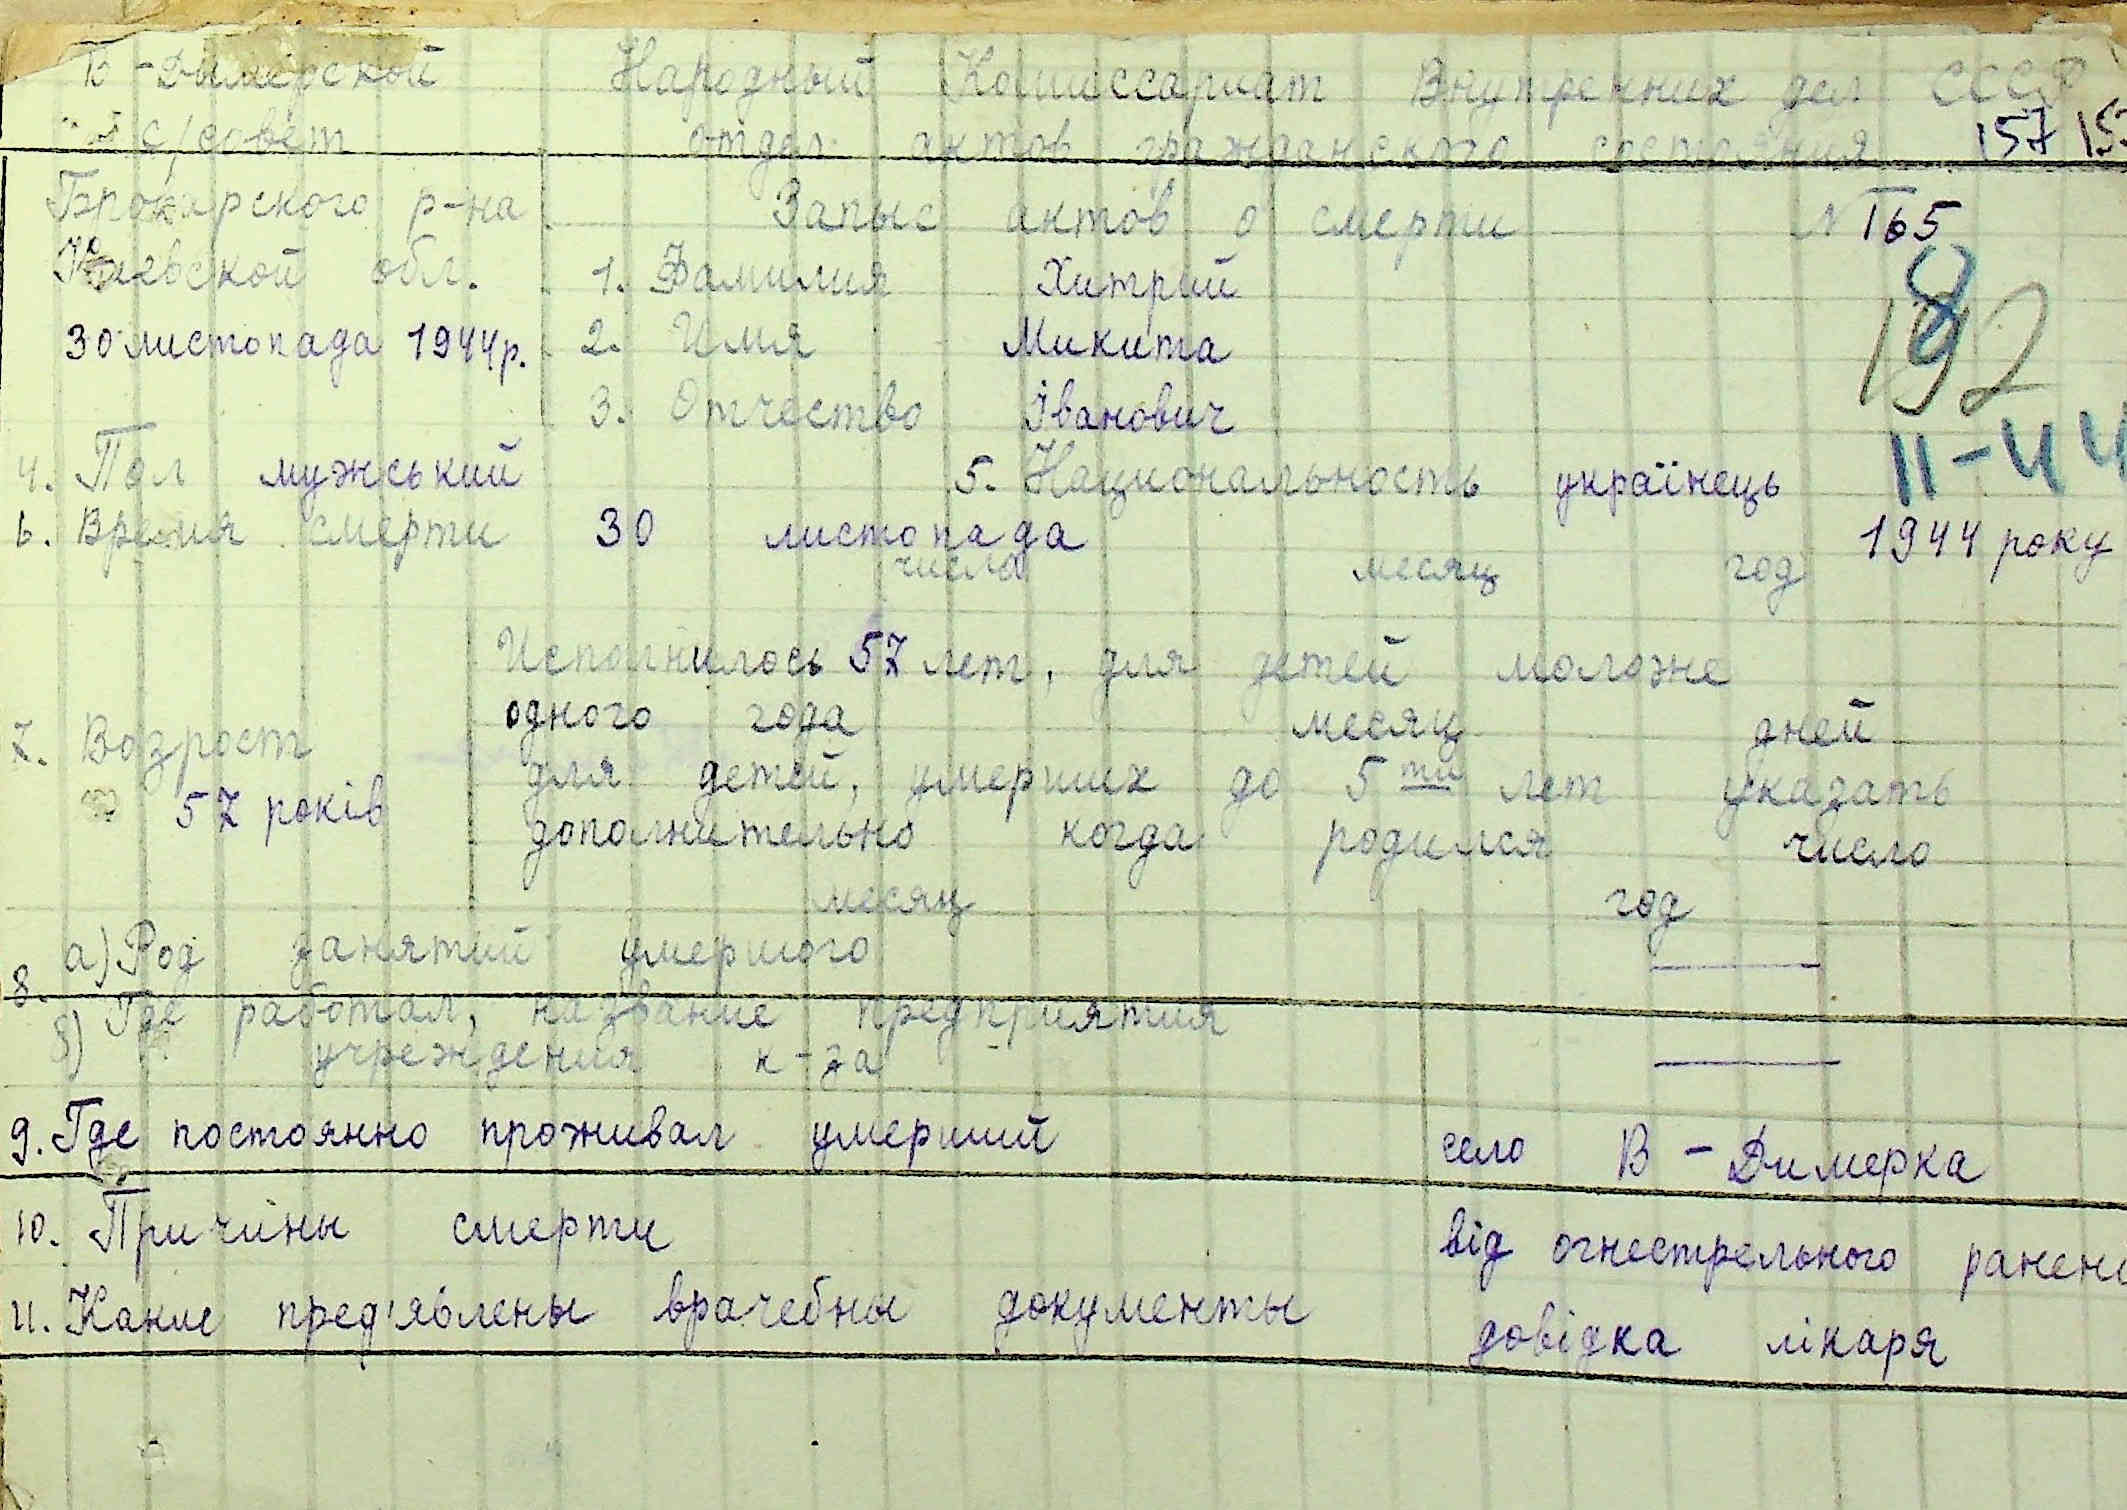 Б-Дымерской Народный Комиссариат Внутренних дел СССР
с/совет отдел актов гражданского состояния 157
Брокарского р-на Запыс актов о смерти № 165
Киевской обл. 1. Фамилия Хитрий
30 листопада 1944р. 2. Имя Микита
192
3. Отчество Іванович
II-44
4. Пол мужський 5. Национальность українець
6. Время смерти 30 листопада 1944 року
число месяц год
Исполнилось 57 лет, для детей моложе
одного года месяц дней
7. Возрост
для детей, умерших до 5ти лет указать
57 років
дополнительно когда родился число
месяц год
8. а) Род занятий умершого —
б) Где работал, название предприятия
учреждения к-за —
9. Где постоянно проживал умерший село В-Димерка
10. Причины смерти від огнестрельного
11. Какие пред'явлены врачебны документы довідка лікаря